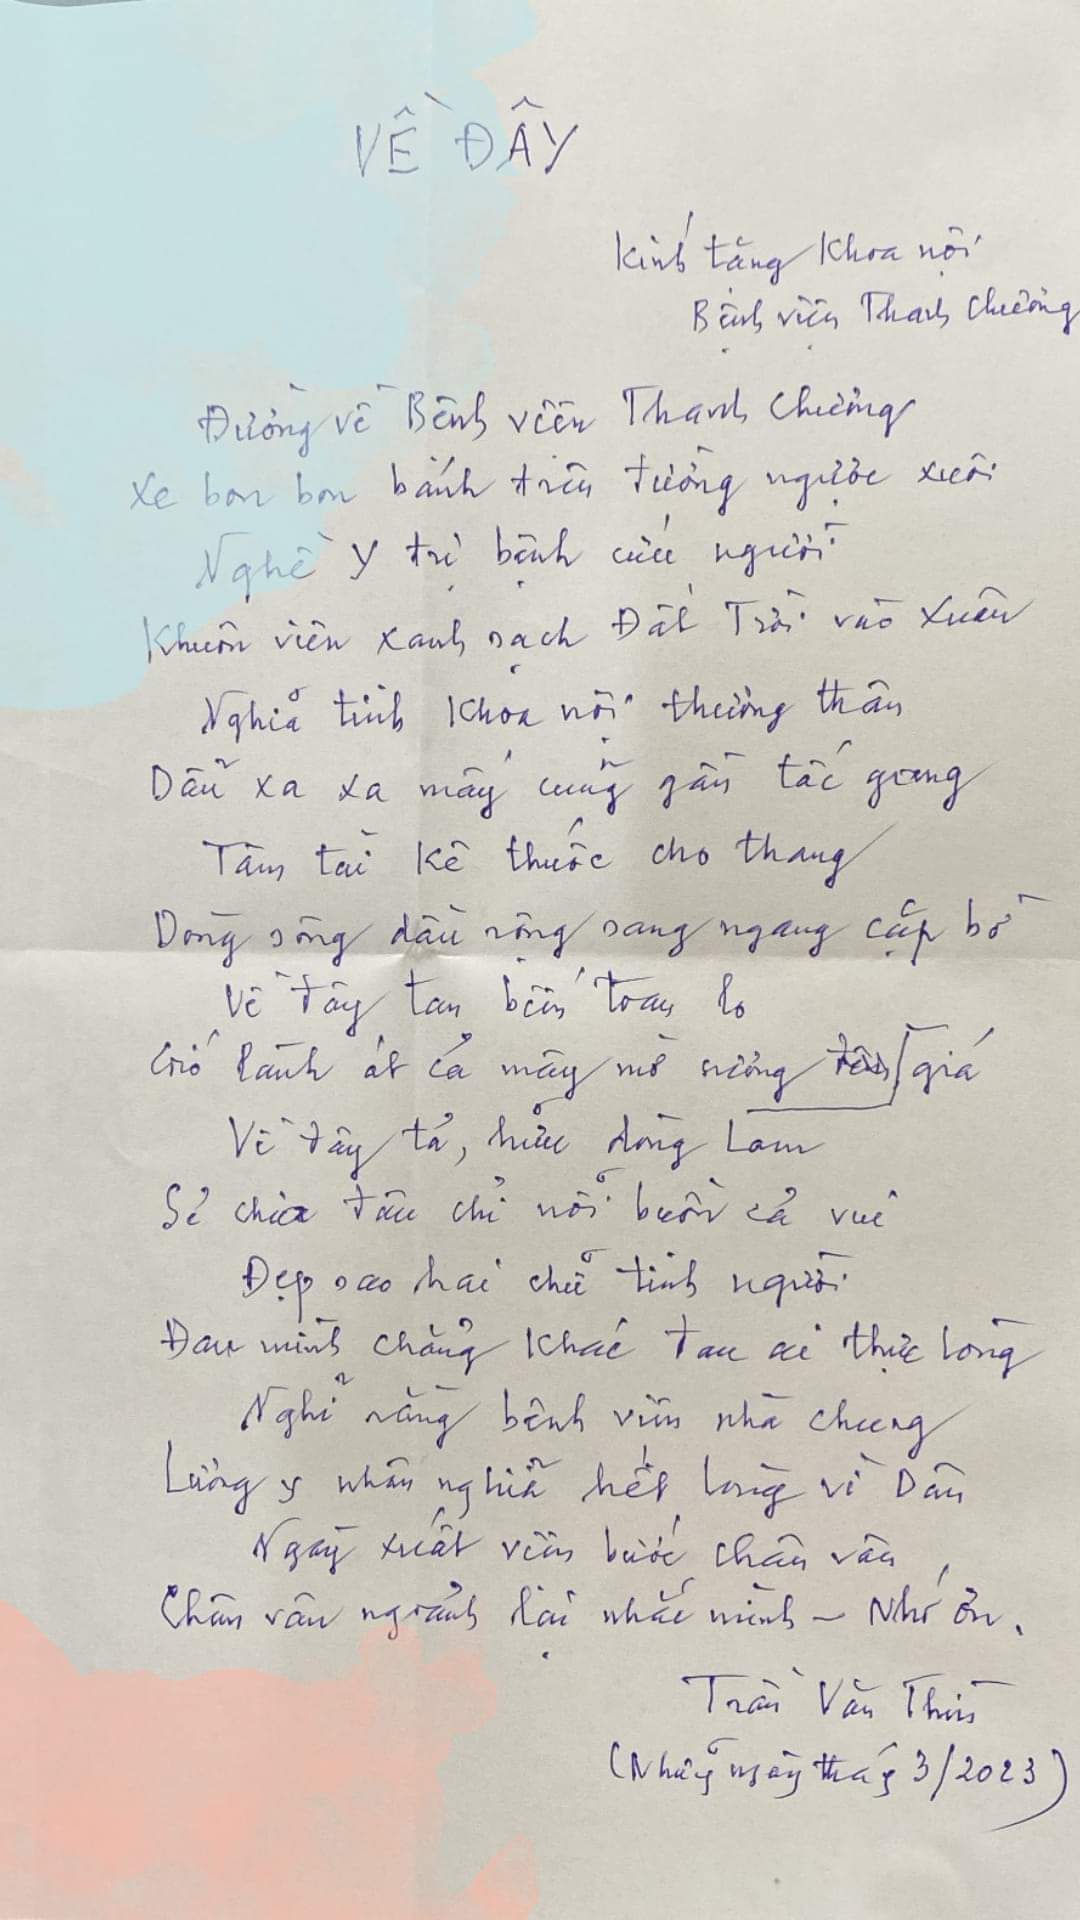 VỀ ĐÂY
Kính tặng Khoa nội
Bệnh viện Thanh Chương
Đường về Bệnh viện Thanh Chương
Xe bon bon bánh trên đường ngược xuôi
Nghề y trị bệnh cứu người
Khuôn viên xanh sạch Đất Trời vào Xuân
Nghĩa tình Khoa nội thường thân
Dẫu xa xa mấy cũng gần tấc gang
Tâm tài kê thuốc cho thang
Dòng sông dẫu rộng sang ngang cập bờ
Về đây tan biến toan lo
Gió lành át cả mây mờ sương giá
Về đây tả, hữu dòng Lam
Sẻ chia đâu chỉ nỗi buồn cả vui
Đẹp sao hai chữ tình người
Đau mình chẳng khác đau ai thực lòng
Nghĩ rằng bệnh viện nhà chung
Lương y nhân nghĩa hết lòng vì Dân
Ngày xuất viện bước chân vân
Chân vân ngoảnh lại nhắc mình - Nhớ ơn.
Trần Văn Thìn
(Những ngày tháng 3/2023)